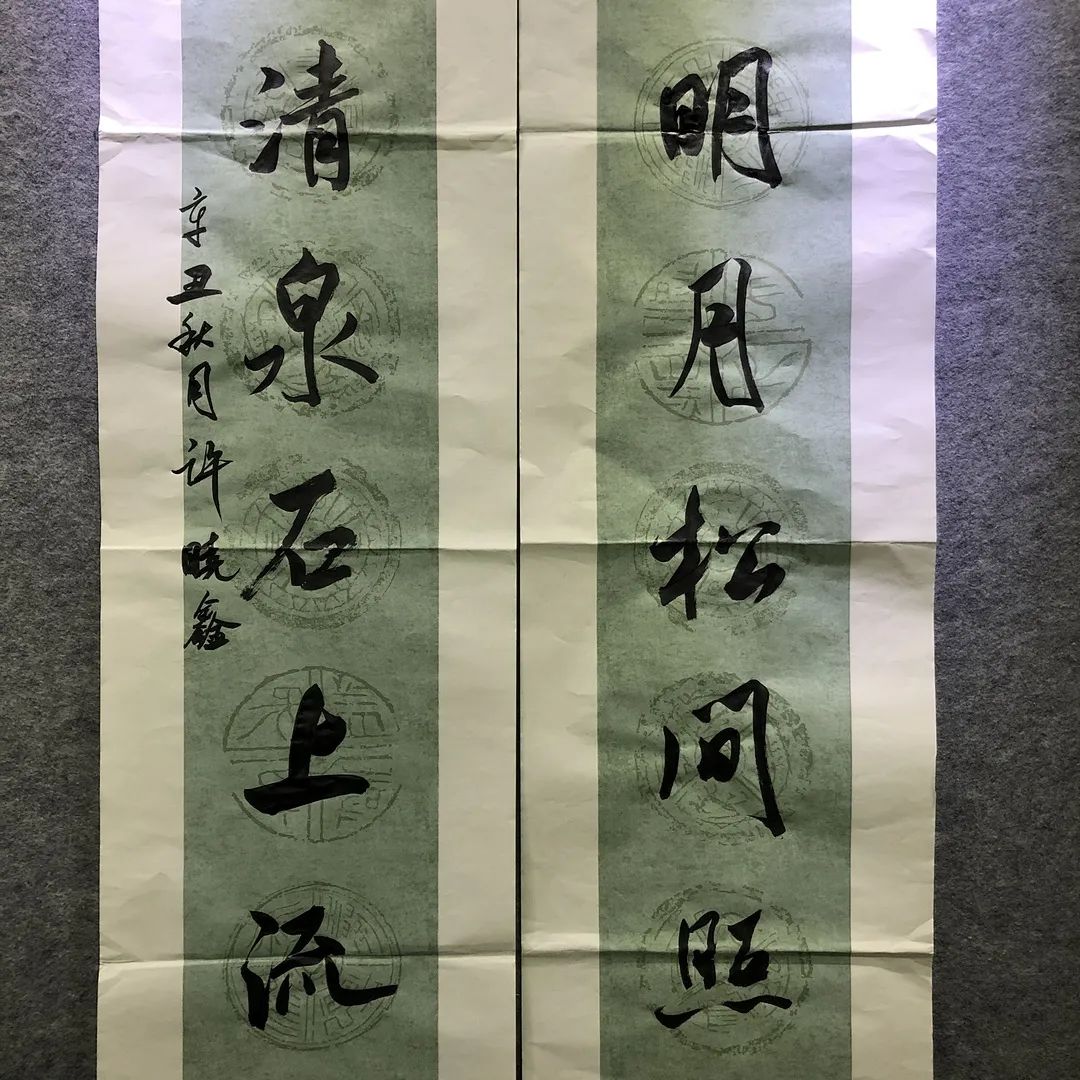 明月松间照
清泉石上流
辛丑秋月许晓鑫